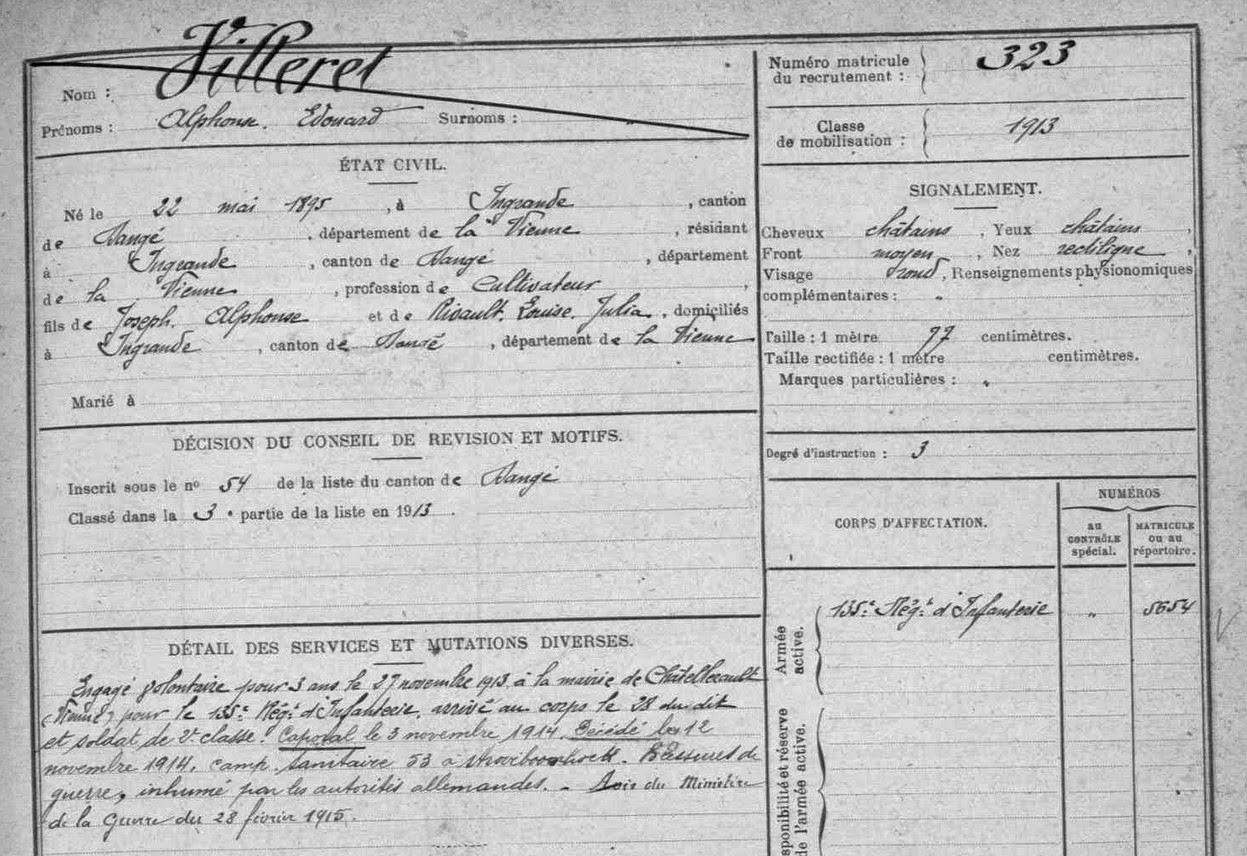 Nom : Villeret
Prénoms : Alphonse. Edouard Surnoms : "
Numéro matricule
du recrutement : 323
Classe
de mobilisation : 1913
ÉTAT CIVIL.
Né le 22 mai 1895, à Ingrande, canton
de Dangé, département de la Vienne, résidant
à Ingrande, canton de Dangé, département
de la Vienne, profession de Cultivateur,
fils de Joseph. Alphonse et de Rivault. Louise. Julia, domiciliés
à Ingrande, canton de Dangé, département de la Vienne
Marié à
SIGNALEMENT.
Cheveux châtains, Yeux châtains,
Front moyen, Nez rectiligne,
Visage rond, Renseignements physionomiques
complémentaires : "
Taille : 1 mètre 77 centimètres.
Taille rectifiée : 1 mètre centimètres.
Marques particulières : "
Degré d'instruction : 3
DÉCISION DU CONSEIL DE REVISION ET MOTIFS.
Inscrit sous le nº 54 de la liste du canton de Dangé
Classé dans la 3e partie de la liste en 1913.
CORPS D'AFFECTATION.
NUMÉROS
au
CONTRÔLE
spécial.
MATRICULE
ou au
répertoire.
Armée
active.
135e Régt d'Infanterie " 5654
Disponibilité et réserve
de l'armée active.
DÉTAIL DES SERVICES ET MUTATIONS DIVERSES.
Engagé volontaire pour 3 ans le 27 novembre 1913 à la mairie de Châtellerault
(Vienne) pour le 135e Régt d'Infanterie, arrivé au corps le 28 du dit
et soldat de 2e classe. Caporal le 3 novembre 1914. Décédé le 12
novembre 1914. camp. sanitaire 53 à Blessures de
guerre, inhumé par les autorités allemandes. - Avis du Ministère
de la Guerre du 28 février 1915.